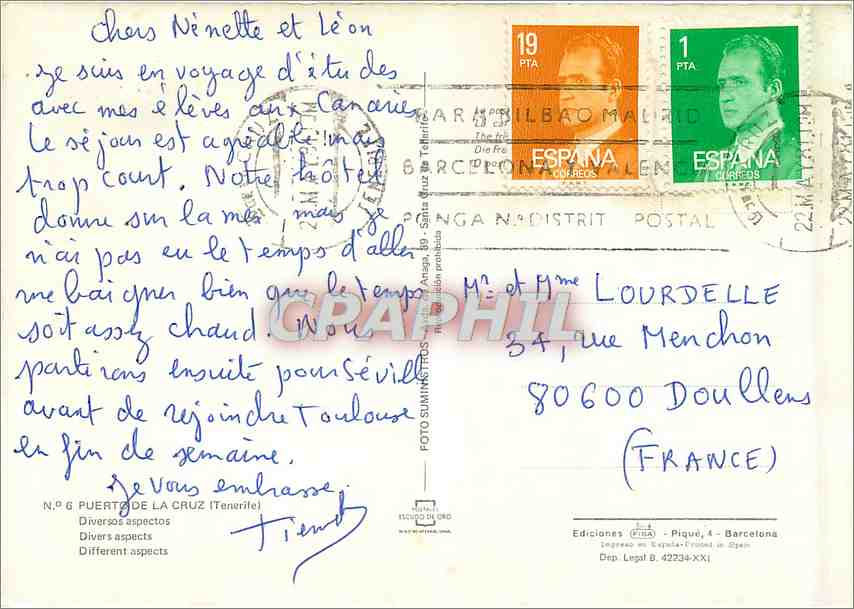 Chers Nénette et Léon
Je suis en voyage d'études
avec mes élèves aux Canaries
Le séjour est agréable mais
trop court. Notre hôtel
donne sur la mer mais je
n'ai pas eu le temps d'aller
me baigner bien que le temps
soit assez chaud. Nous
partirons ensuite pour Séville
avant de rejoindre Toulouse
en fin de semaine.
Je vous embrasse.
N.º 6 PUERTO DE LA CRUZ (Tenerife)
Diversos aspectos
Divers aspects
Different aspects
FOTO SUMINISTROS - Avda. de Anaga, 39 - Santa Cruz de Tenerife
Reproducción prohibida
POSTALES
ESCUDO DE ORO
19
PTA
ESPAÑA
CORREOS
1
PTA
ESPAÑA
CORREOS
PARA BILBAO MADRID
BARCELONA VALENCIA
PONGA Nº DISTRITO POSTAL
Mr et Mme LOURDELLE
34, rue Menchon
80600 Doullens
(FRANCE)
CPAPHIL
Ediciones FISA - Piqué, 4 - Barcelona
Impreso en España-Printed in Spain
Dep. Legal B. 42234-XXI